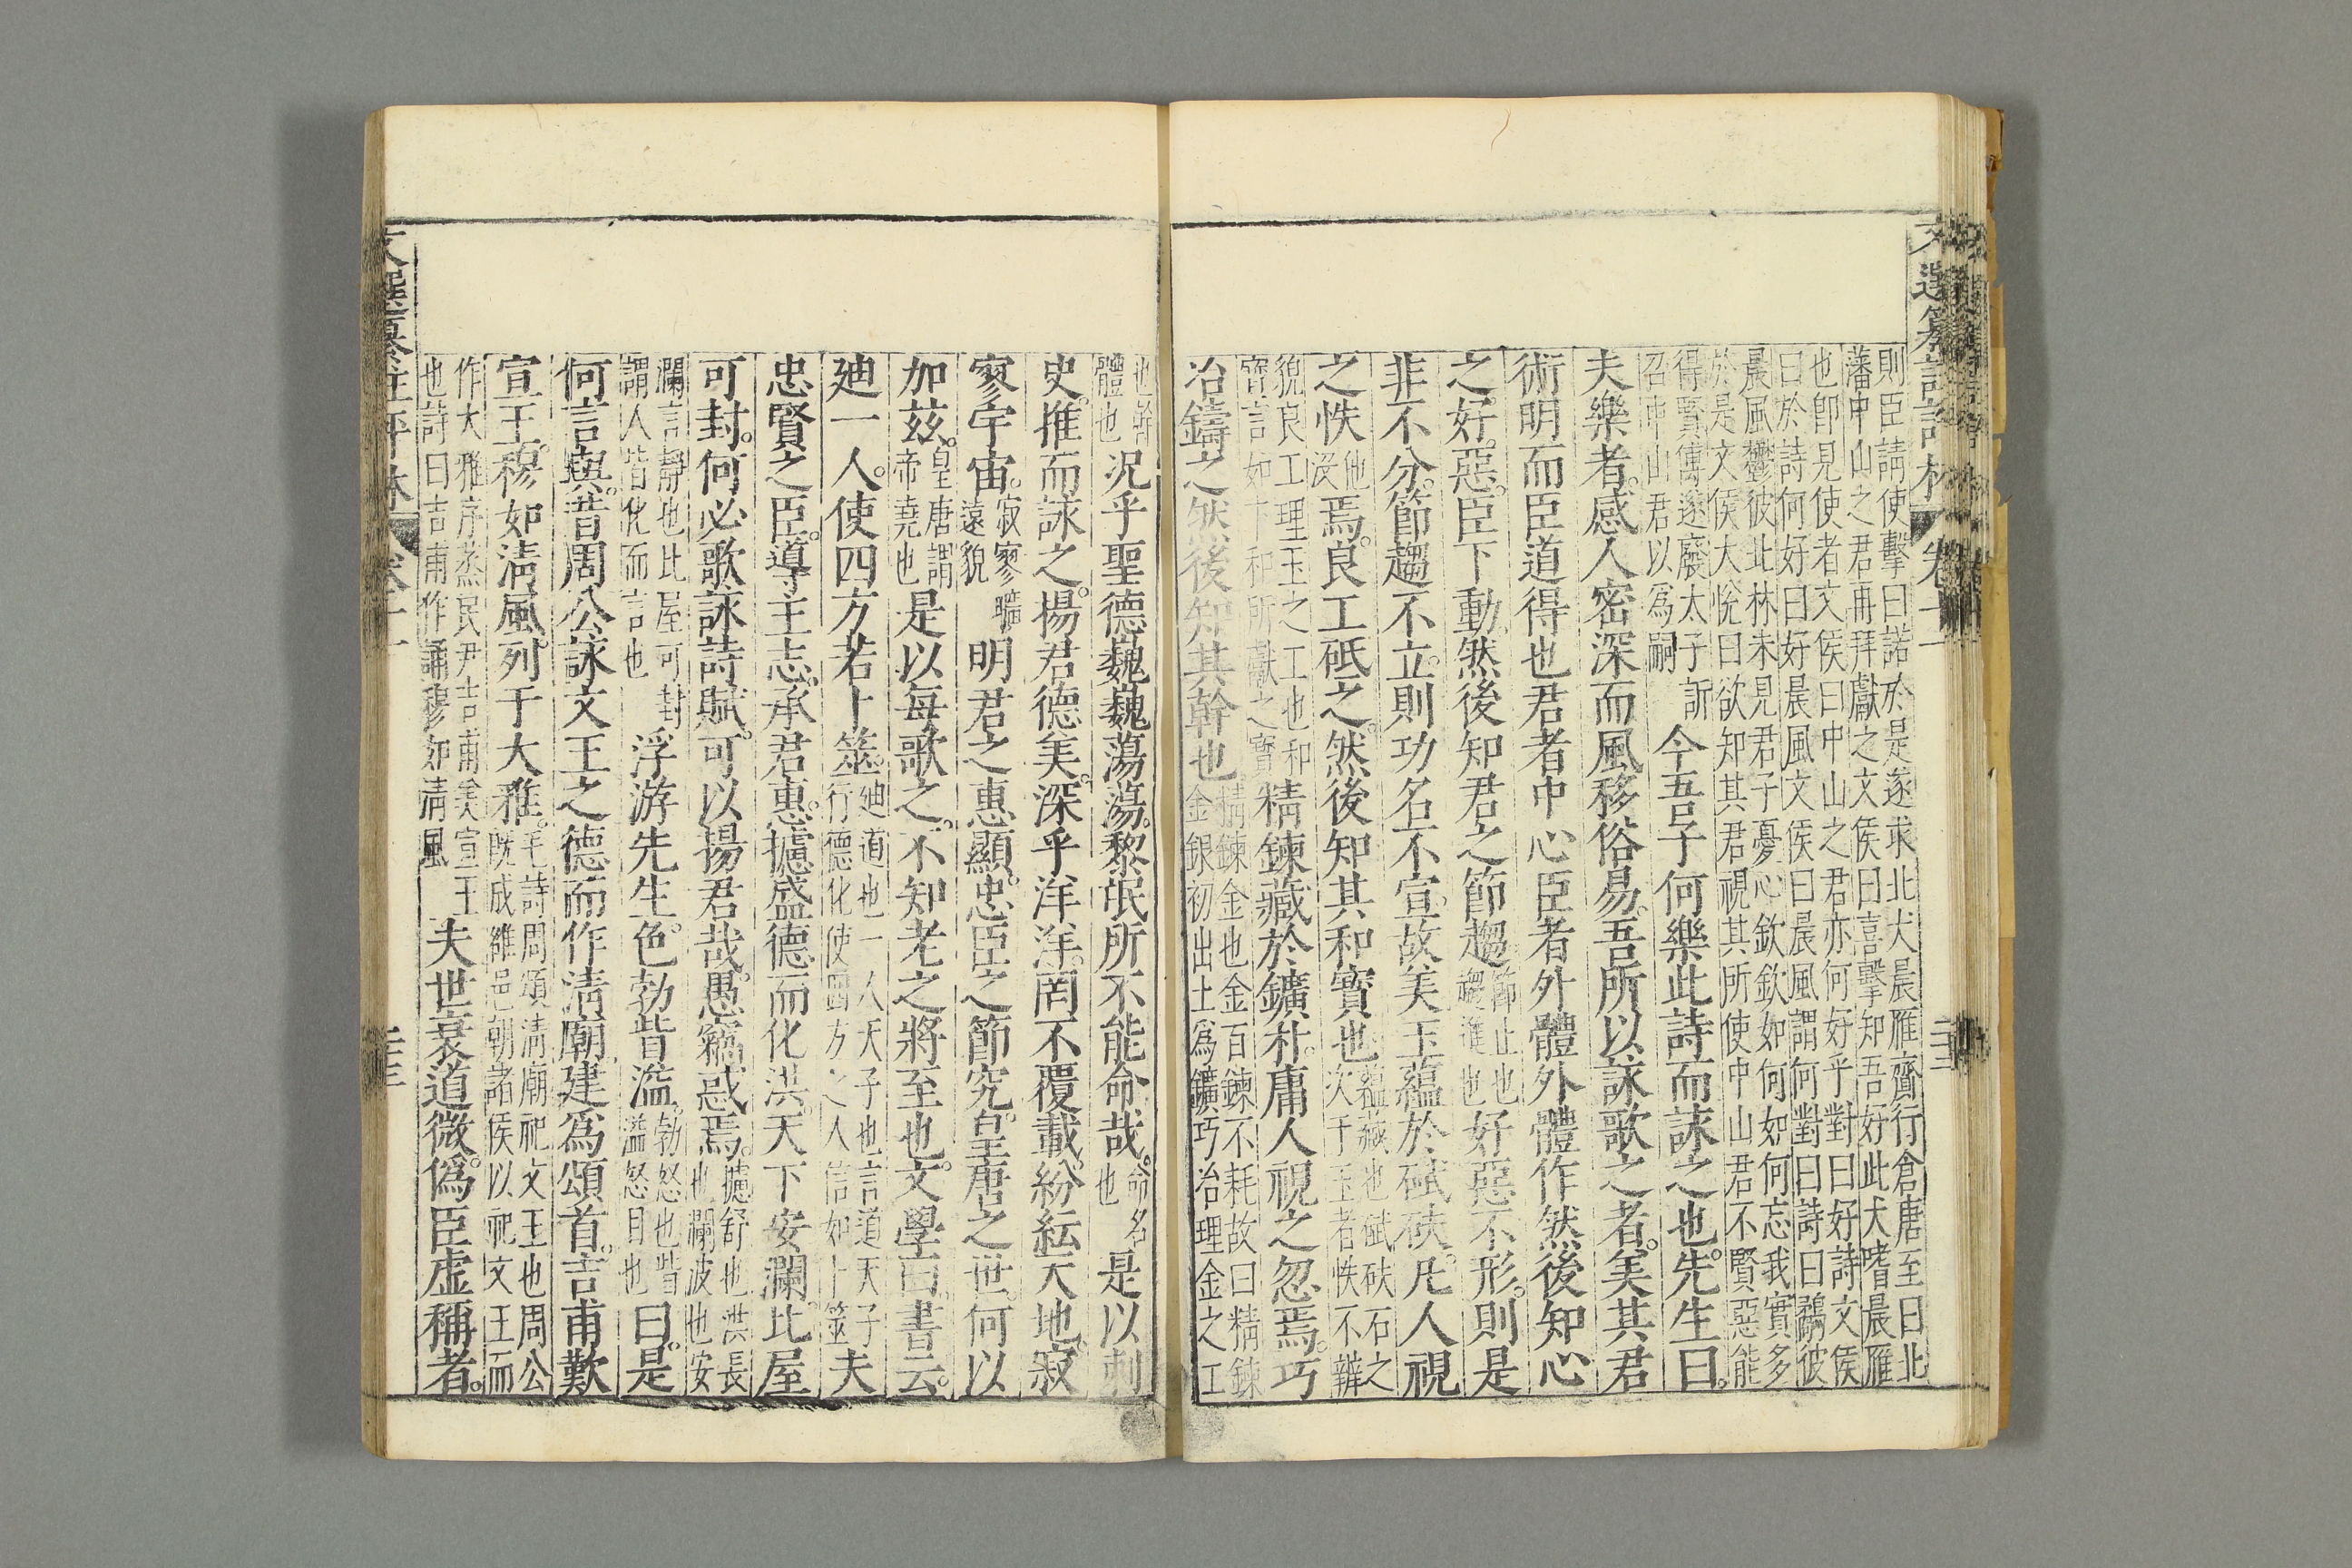 則臣請使擊曰諾於是遂求北犬晨雁齎行倉唐至曰北
藩中山之君再拜獻之文侯曰喜擊知吾好此犬嗜晨雁
也卽見使者文侯曰中山之君亦何好乎對曰好詩文侯
曰於詩何好曰好晨風文侯曰晨風謂何對曰詩曰鷸彼
晨風鬱彼北林未見君子憂心欽欽如何如何忘我實多
於是文侯大悅曰欲知其君視其所使中山君不賢惡能
得賢傅遂廢太子訢
召中山君以爲嗣
今吾子何樂此詩而詠之也先生曰
夫樂者感人密深而風移俗易吾所以詠歌之者美其君
術明而臣道得也君者中心臣者外體外體作然後知心
之好惡臣下動然後知君之節趨
節止也
趨進也
好惡不形則是
非不分節趨不立則功名不宣故美玉蘊於碔砆凡人視
之怢
他
沒
焉良工砥之然後知其和寶也
蘊藏也碔砆石之
次于玉者怢不辨
貌良工理玉之工也和
寶言如卞和所獻之寶
精鍊藏於鑛朴庸人視之忽焉巧
冶鑄之然後知其幹也
精鍊金也金百鍊不耗故曰精鍊
金銀初出土爲鑛巧冶理金之工
也幹
體也
況乎聖德巍巍蕩蕩黎氓所不能命哉
命名
也
是以刺
史推而詠之揚君德美深乎洋洋罔不覆載紛紜天地寂
寥宇宙
寂寥曠
遠貌
明君之惠顯忠臣之節究皇唐之世何以
加茲
皇唐謂
帝堯也
是以每歌之不知老之將至也文學曰書云
廸一人使四方若卜筮
廸道也一人天子也言道天子
行德化使四方之人信如卜筮
夫
忠賢之臣導主志承君惠攄盛德而化洪天下安瀾比屋
可封何必歌詠詩賦可以揚君哉愚竊惑焉
攄舒也洪長
也瀾波也安
瀾言靜也比屋可封
謂人皆化而言也
浮游先生色勃眥溢
勃怒也眥
溢怒目也
曰是
何言與昔周公詠文王之德而作清廟建爲頌首吉甫歎
宣王穆如清風列于大雅
毛詩周頌清廟祀文王也周公
旣成雒邑朝諸侯以祀文王而
作大雅序烝民尹吉甫美宣王
也詩曰吉甫作誦穆如清風
夫世衰道微僞臣虛稱者